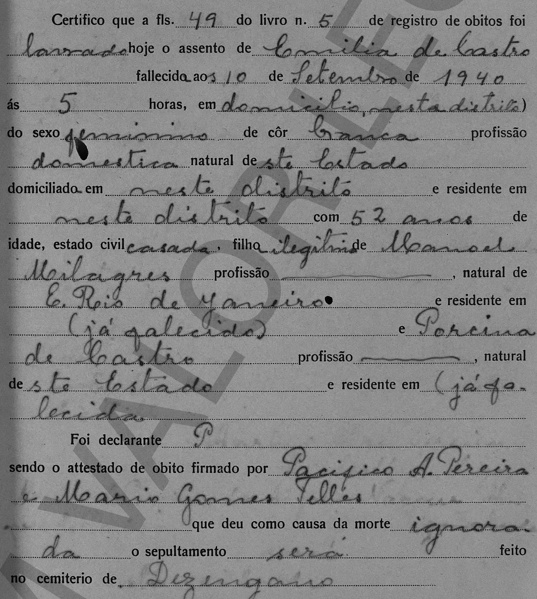 Certifico que a fls. 49 do livro n. 5 de registro de obitos foi
lavrado hoje o assento de Emilia de Castro
fallecida aos 10 de Setembro de 1940
ás 5 horas, em domicilio, neste districto
do sexo feminino de côr branca profissão
domestica natural deste Estado
domiciliada em neste distrito e residente em
neste distrito com 52 anos de
idade, estado civil casada, filha ilegitima de Manoel
Milagres profissão , natural de
E. Rio de Janeiro e residente em
(já falecido) e Porcina
de Castro profissão , natural
deste Estado e residente em (já fa-
lecida
Foi declarante P
sendo o attestado de obito firmado por Pacifico A. Pereira
e Mario Gomes Telles
que deu como causa da morte ignora
da o sepultamento será feito
no cemiterio de Dezengano
VALOR LE